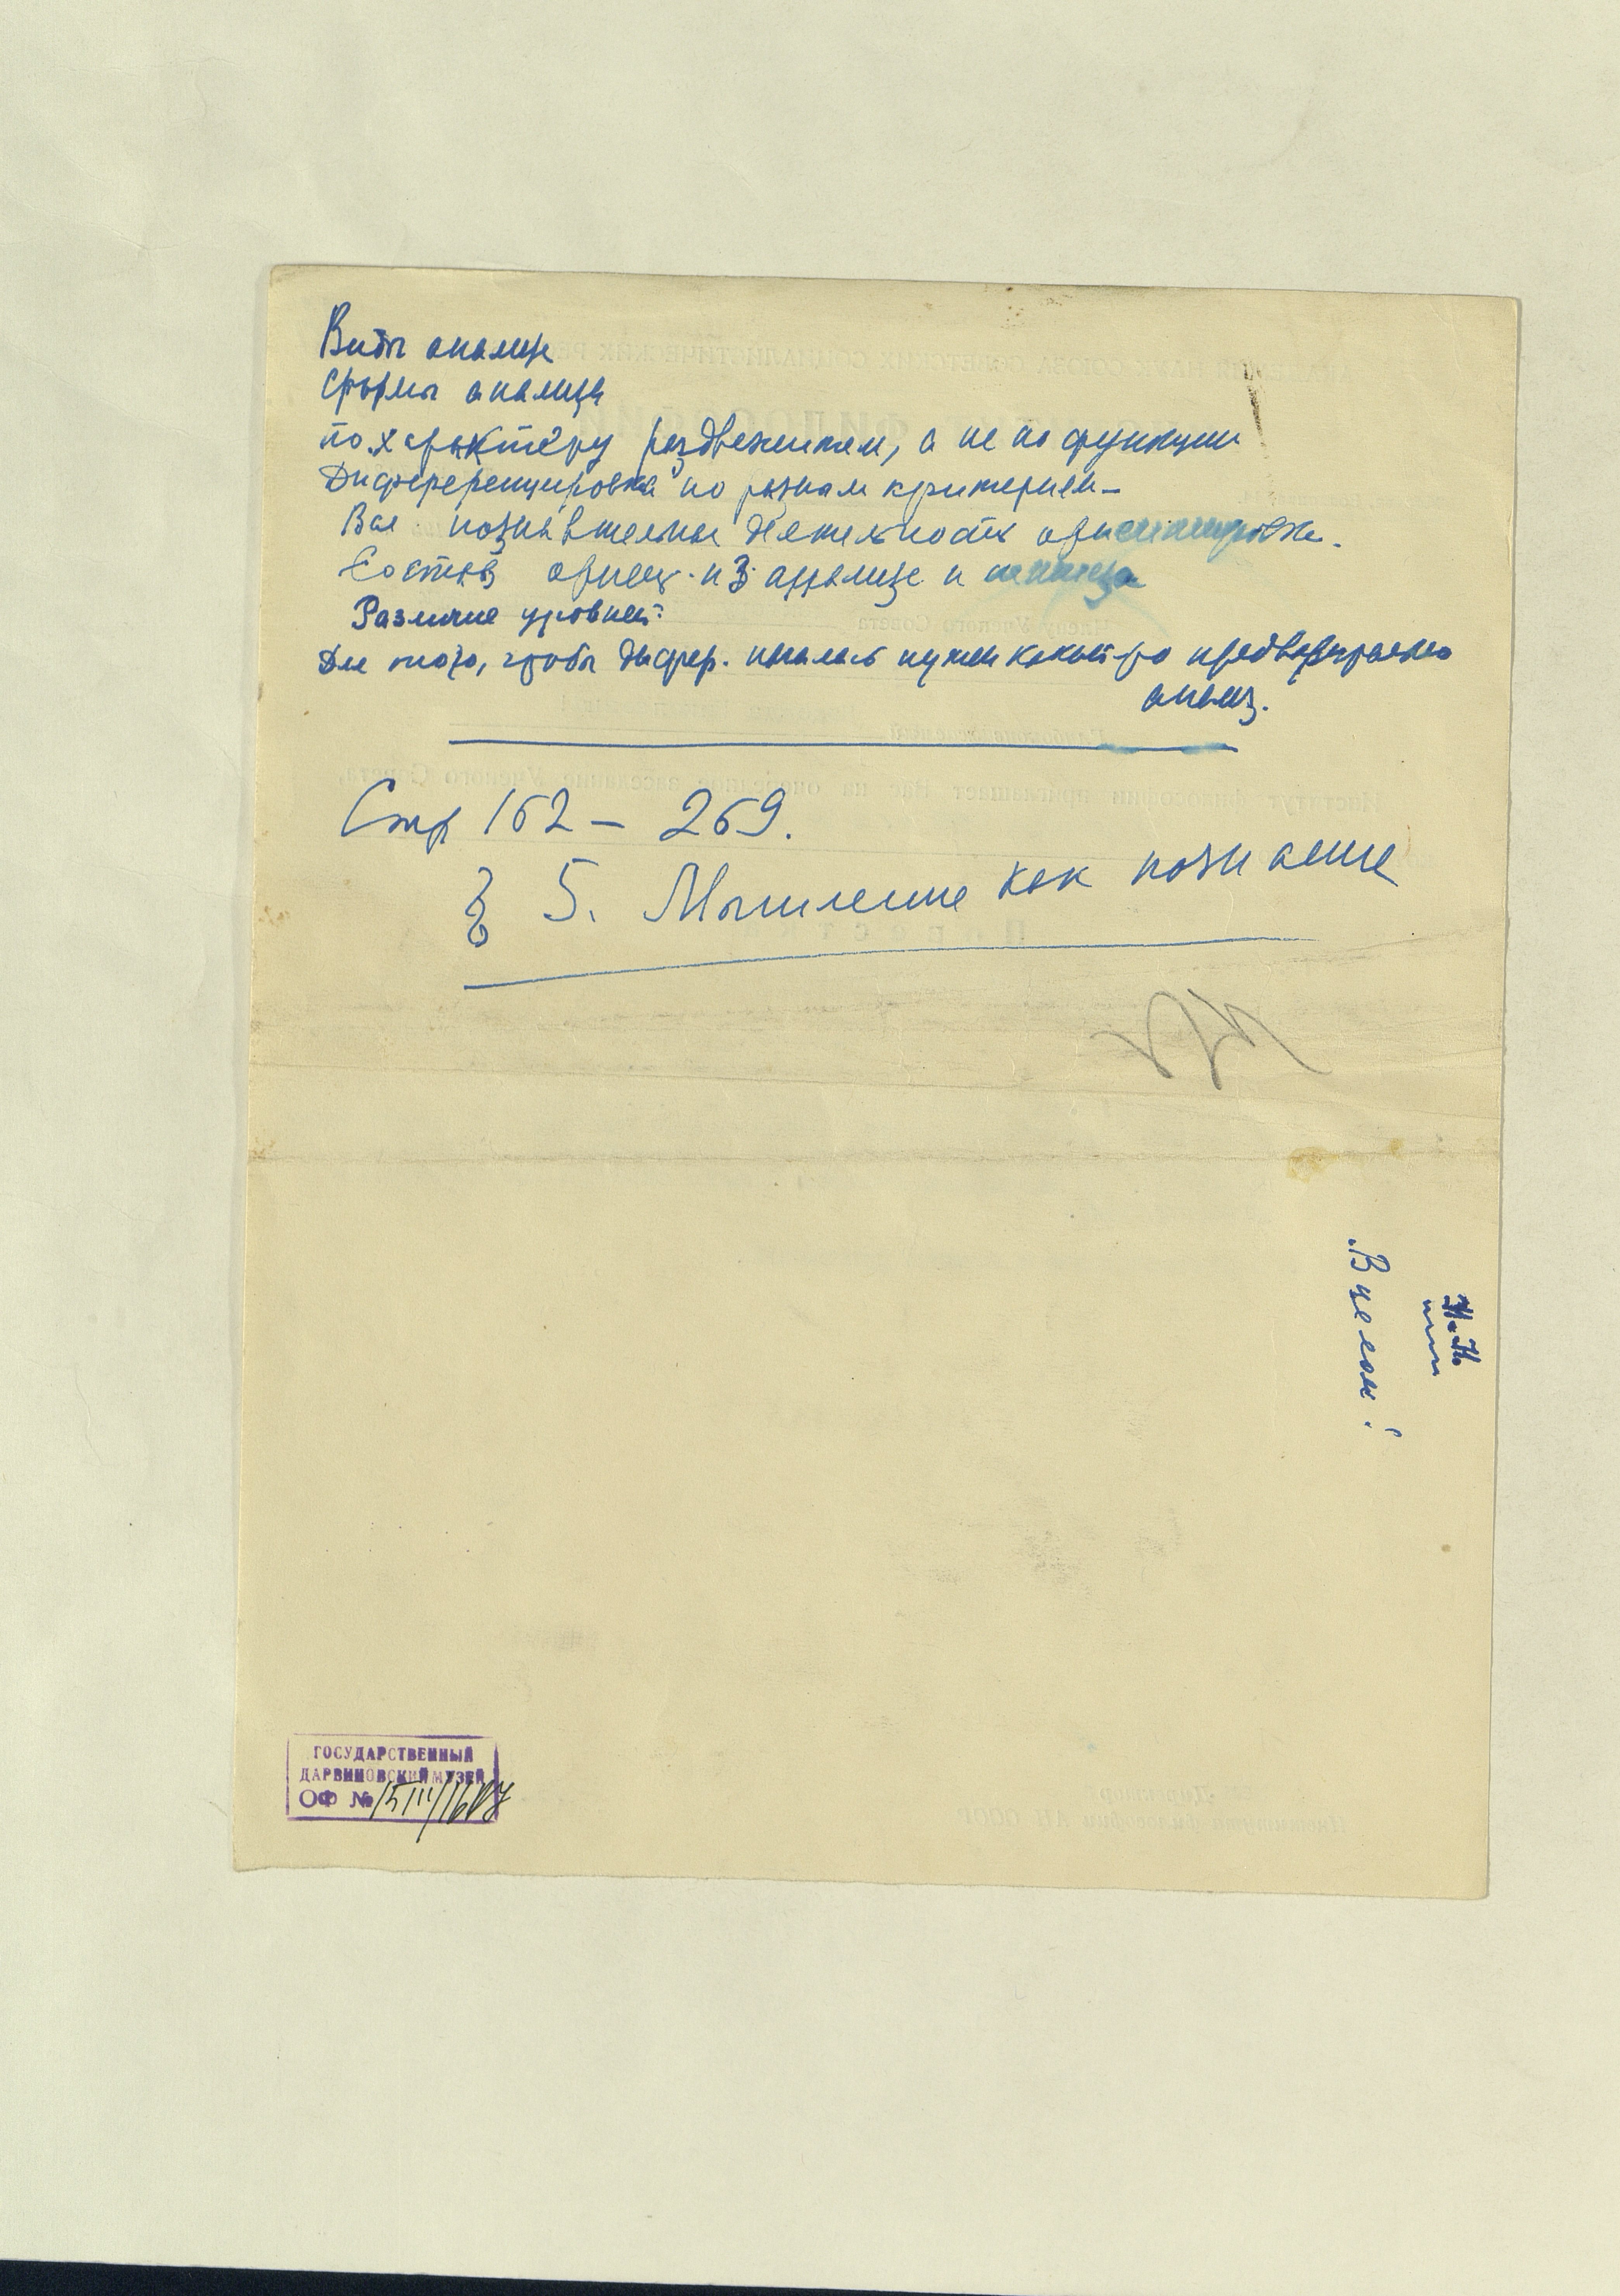 Виды анализа
Формы анализа
по характеру раздражителя, а не по функции
Диференцировка по разным критериям –
Вся познавательная деятельность ориентировочн.
Состав ориен. из анализа и синтеза
Различие уровней:
Для того, чтобы дифер. началась нужен какой-то предварительно
анализ.
Стр 162 – 269.
§ 5. Мышление как познание
В целом!
Н.Н.
ГОСУДАРСТВЕННЫЙ
ДАРВИНОВСКИЙ МУЗЕЙ
ОФ №